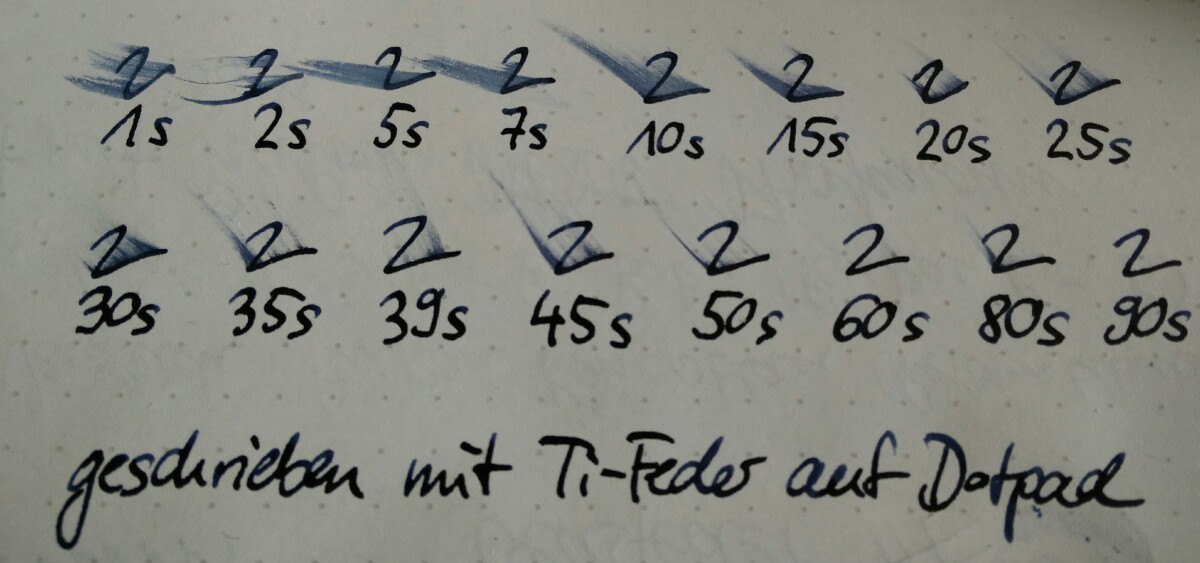 2 2 2 2 2 2 2 2
1s 2s 5s 7s 10s 15s 20s 25s
2 2 2 2 2 2 2 2
30s 35s 39s 45s 50s 60s 80s 90s
geschrieben mit Ti-Feder auf Dotpad